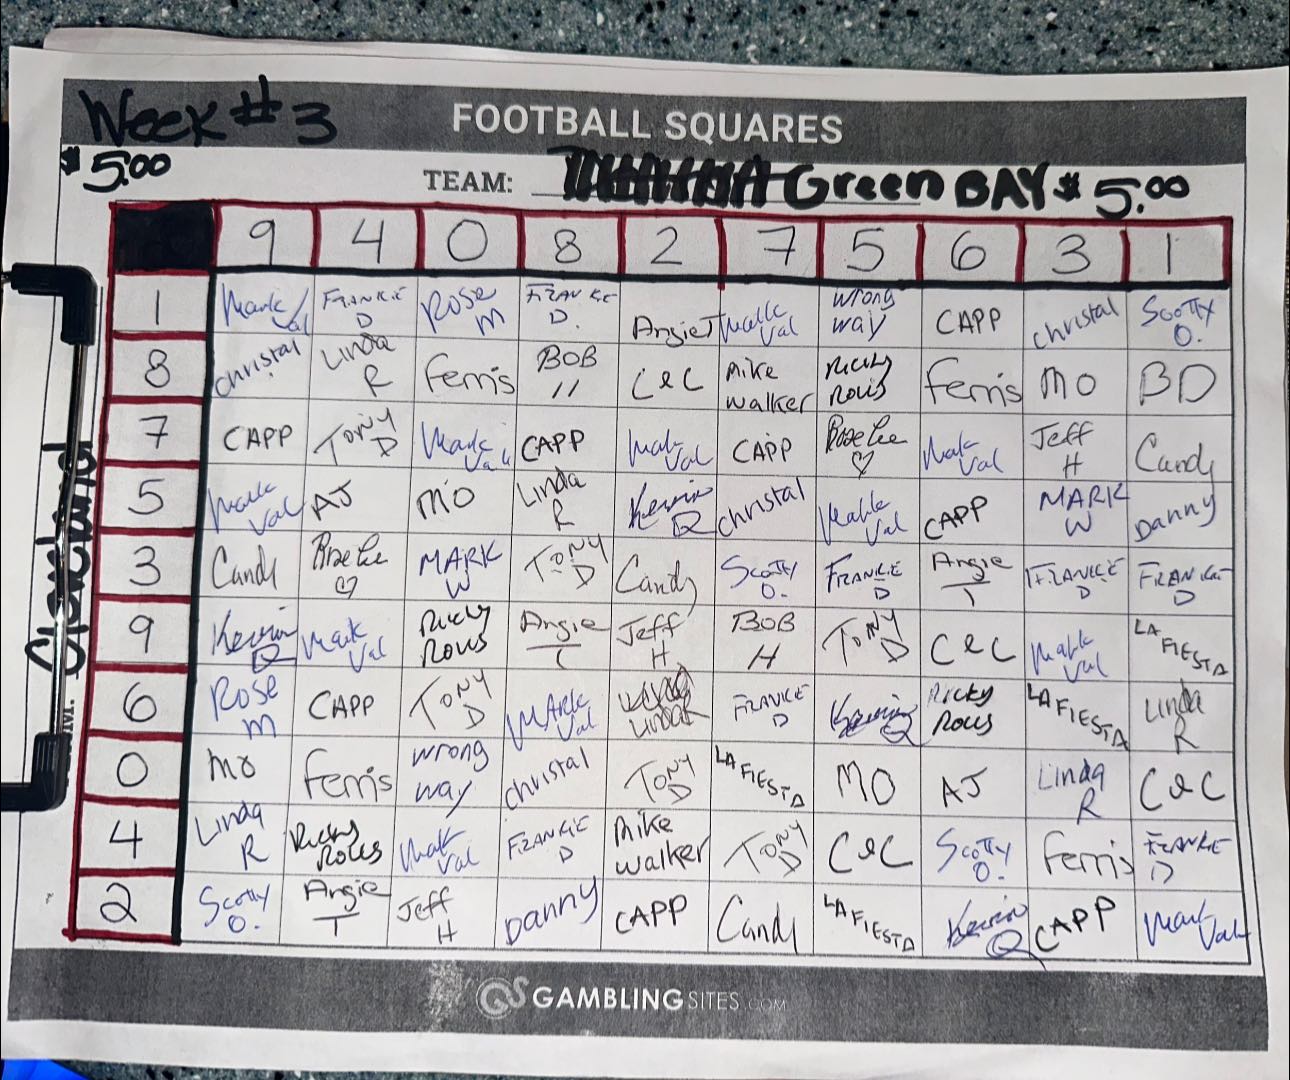 Week #3
FOOTBALL SQUARES
$5.00
TEAM: Green BAY $5.00
Cleveland
9 4 0 8 2 7 5 6 3 1
1 Mark Val FRANKIE D Rose M FRANKIE D. Angie T Mark Val wrong way CAPP christal Scotty O.
8 christal Linda R Ferris BOB H C&C Mike Walker Ricky Rolls Ferris MO BD
7 CAPP TONY D Mark Val CAPP Mark Val CAPP Mark Val Jeff H Candy
5 Mark Val AJ MO Linda R Kevin Q christal Mark Val CAPP MARK W Danny
3 Candy MARK W TONY D Candy Scotty O. FRANKIE D Angie T FRANKIE D FRANKIE D
9 Kevin Q Mark Val Ricky Rolls Angie T Jeff H BOB H TONY D C&C Mark Val LA FIESTA
6 Rose M CAPP TONY D MARK Val LindaR FRANKIE D Kevin Q Ricky Rolls LA FIESTA Linda R
0 MO Ferris wrong way christal TONY D LA FIESTA MO AJ Linda R C&C
4 Linda R Ricky Rolls Mark Val FRANKIE D Mike Walker TONY D C&C Scotty O. Ferris FRANKIE D
2 Scotty O. Angie T Jeff H Danny CAPP Candy LA FIESTA Kevin Q CAPP Mark Val
GS GAMBLINGSITES.COM